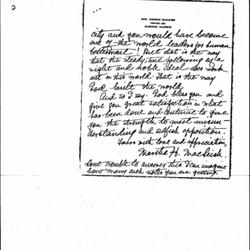 city and you would have become
one of the world leaders for human
betterment! But that is the way
that the steady following of a
right and noble ideal does work
out in this world. that is the way
God built the world.
And so I say: God bless you and
give you great satisfaction in what
has been done and continue to give
you the strength to meet misun-
derstanding and selfish opposition.
Yours with love and appreciation,
Martha H. MacLeish.
Don't trouble to answer this. I can imagine
how many such notes you are getting.